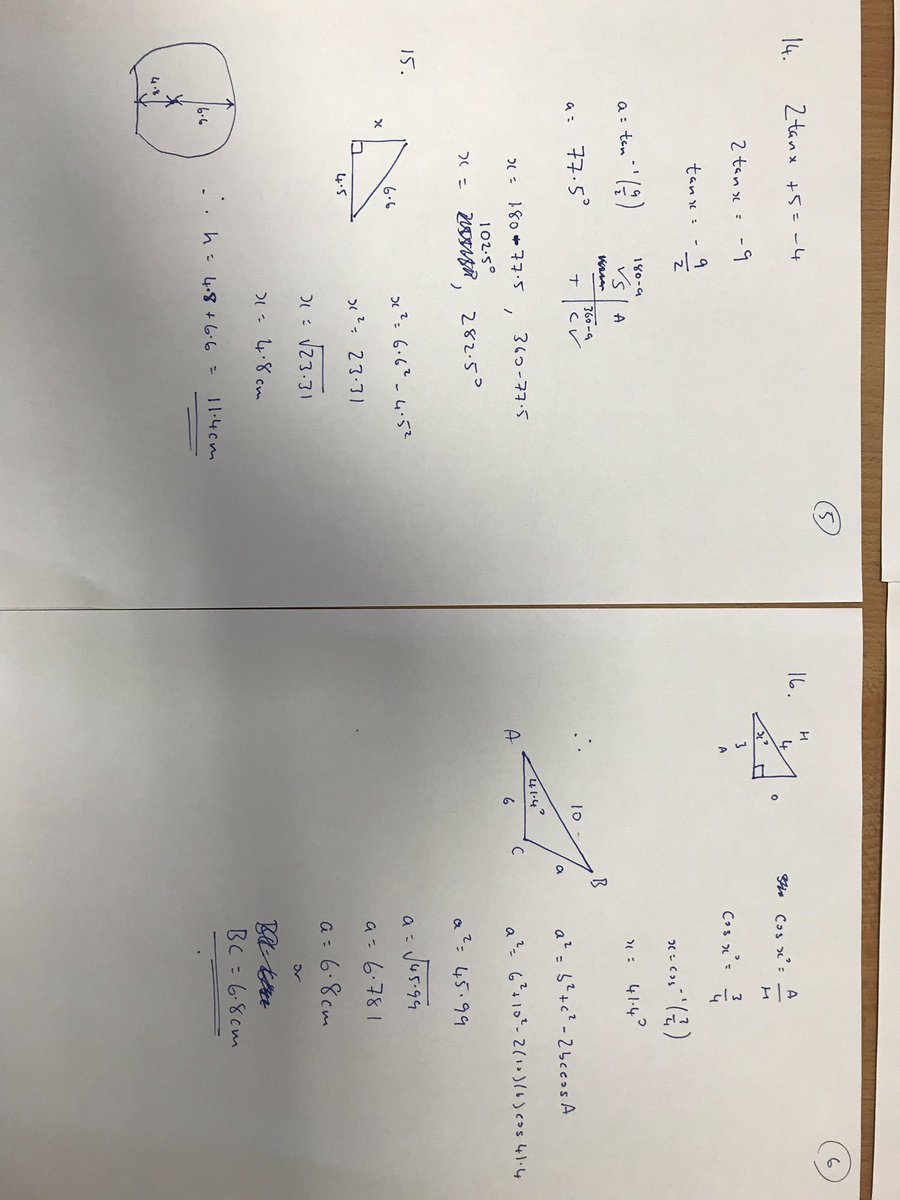 5
14.
2tanx + 5 = -4
2tanx = -9
tanx = -9/2
a = tan⁻¹(9/2)
a = 77.5°
180-a
√S | A
T | C✓
360-a
x = 180-77.5, 360-77.5
102.5°
x = , 282.5°
15.
x
6.6
4.5
x² = 6.6² - 4.5²
x² = 23.31
x = √23.31
x = 4.8cm
6.6
4.8
∴ h = 4.8 + 6.6 = 11.4cm
6
16.
H
4
O
x°
3
A
cos x° = A/H
cos x° = 3/4
x = cos⁻¹(3/4)
x = 41.4°
∴
B
10
a
41.4°
A
6
C
a² = b² + c² - 2bccosA
a² = 6² + 10² - 2(10)(6)cos41.4
a² = 45.99
a = √45.99
a = 6.781
a = 6.8cm
or
BC = 6.8cm